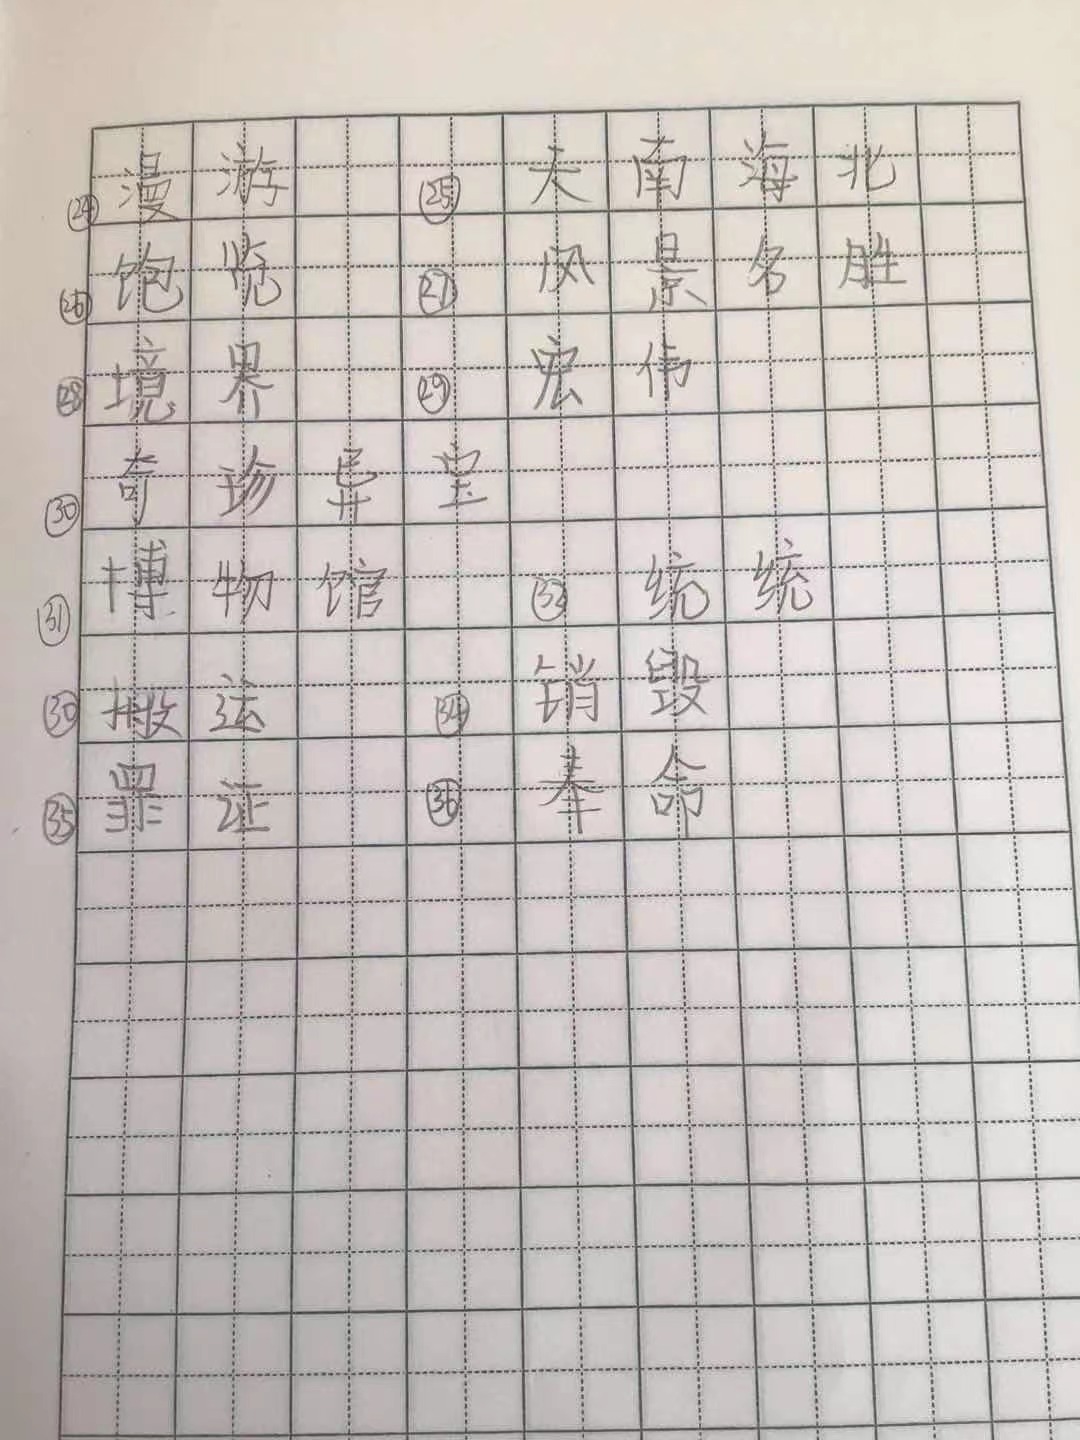 ㉔ 漫游 ㉕ 天南海北
㉖ 饱览 ㉗ 风景名胜
㉘ 境界 ㉙ 宏伟
㉚ 奇珍异宝
㉛ 博物馆 ㉜ 统统
㉚ 运 ㉞ 销毁
㉟ 罪证 ㊱ 奉命